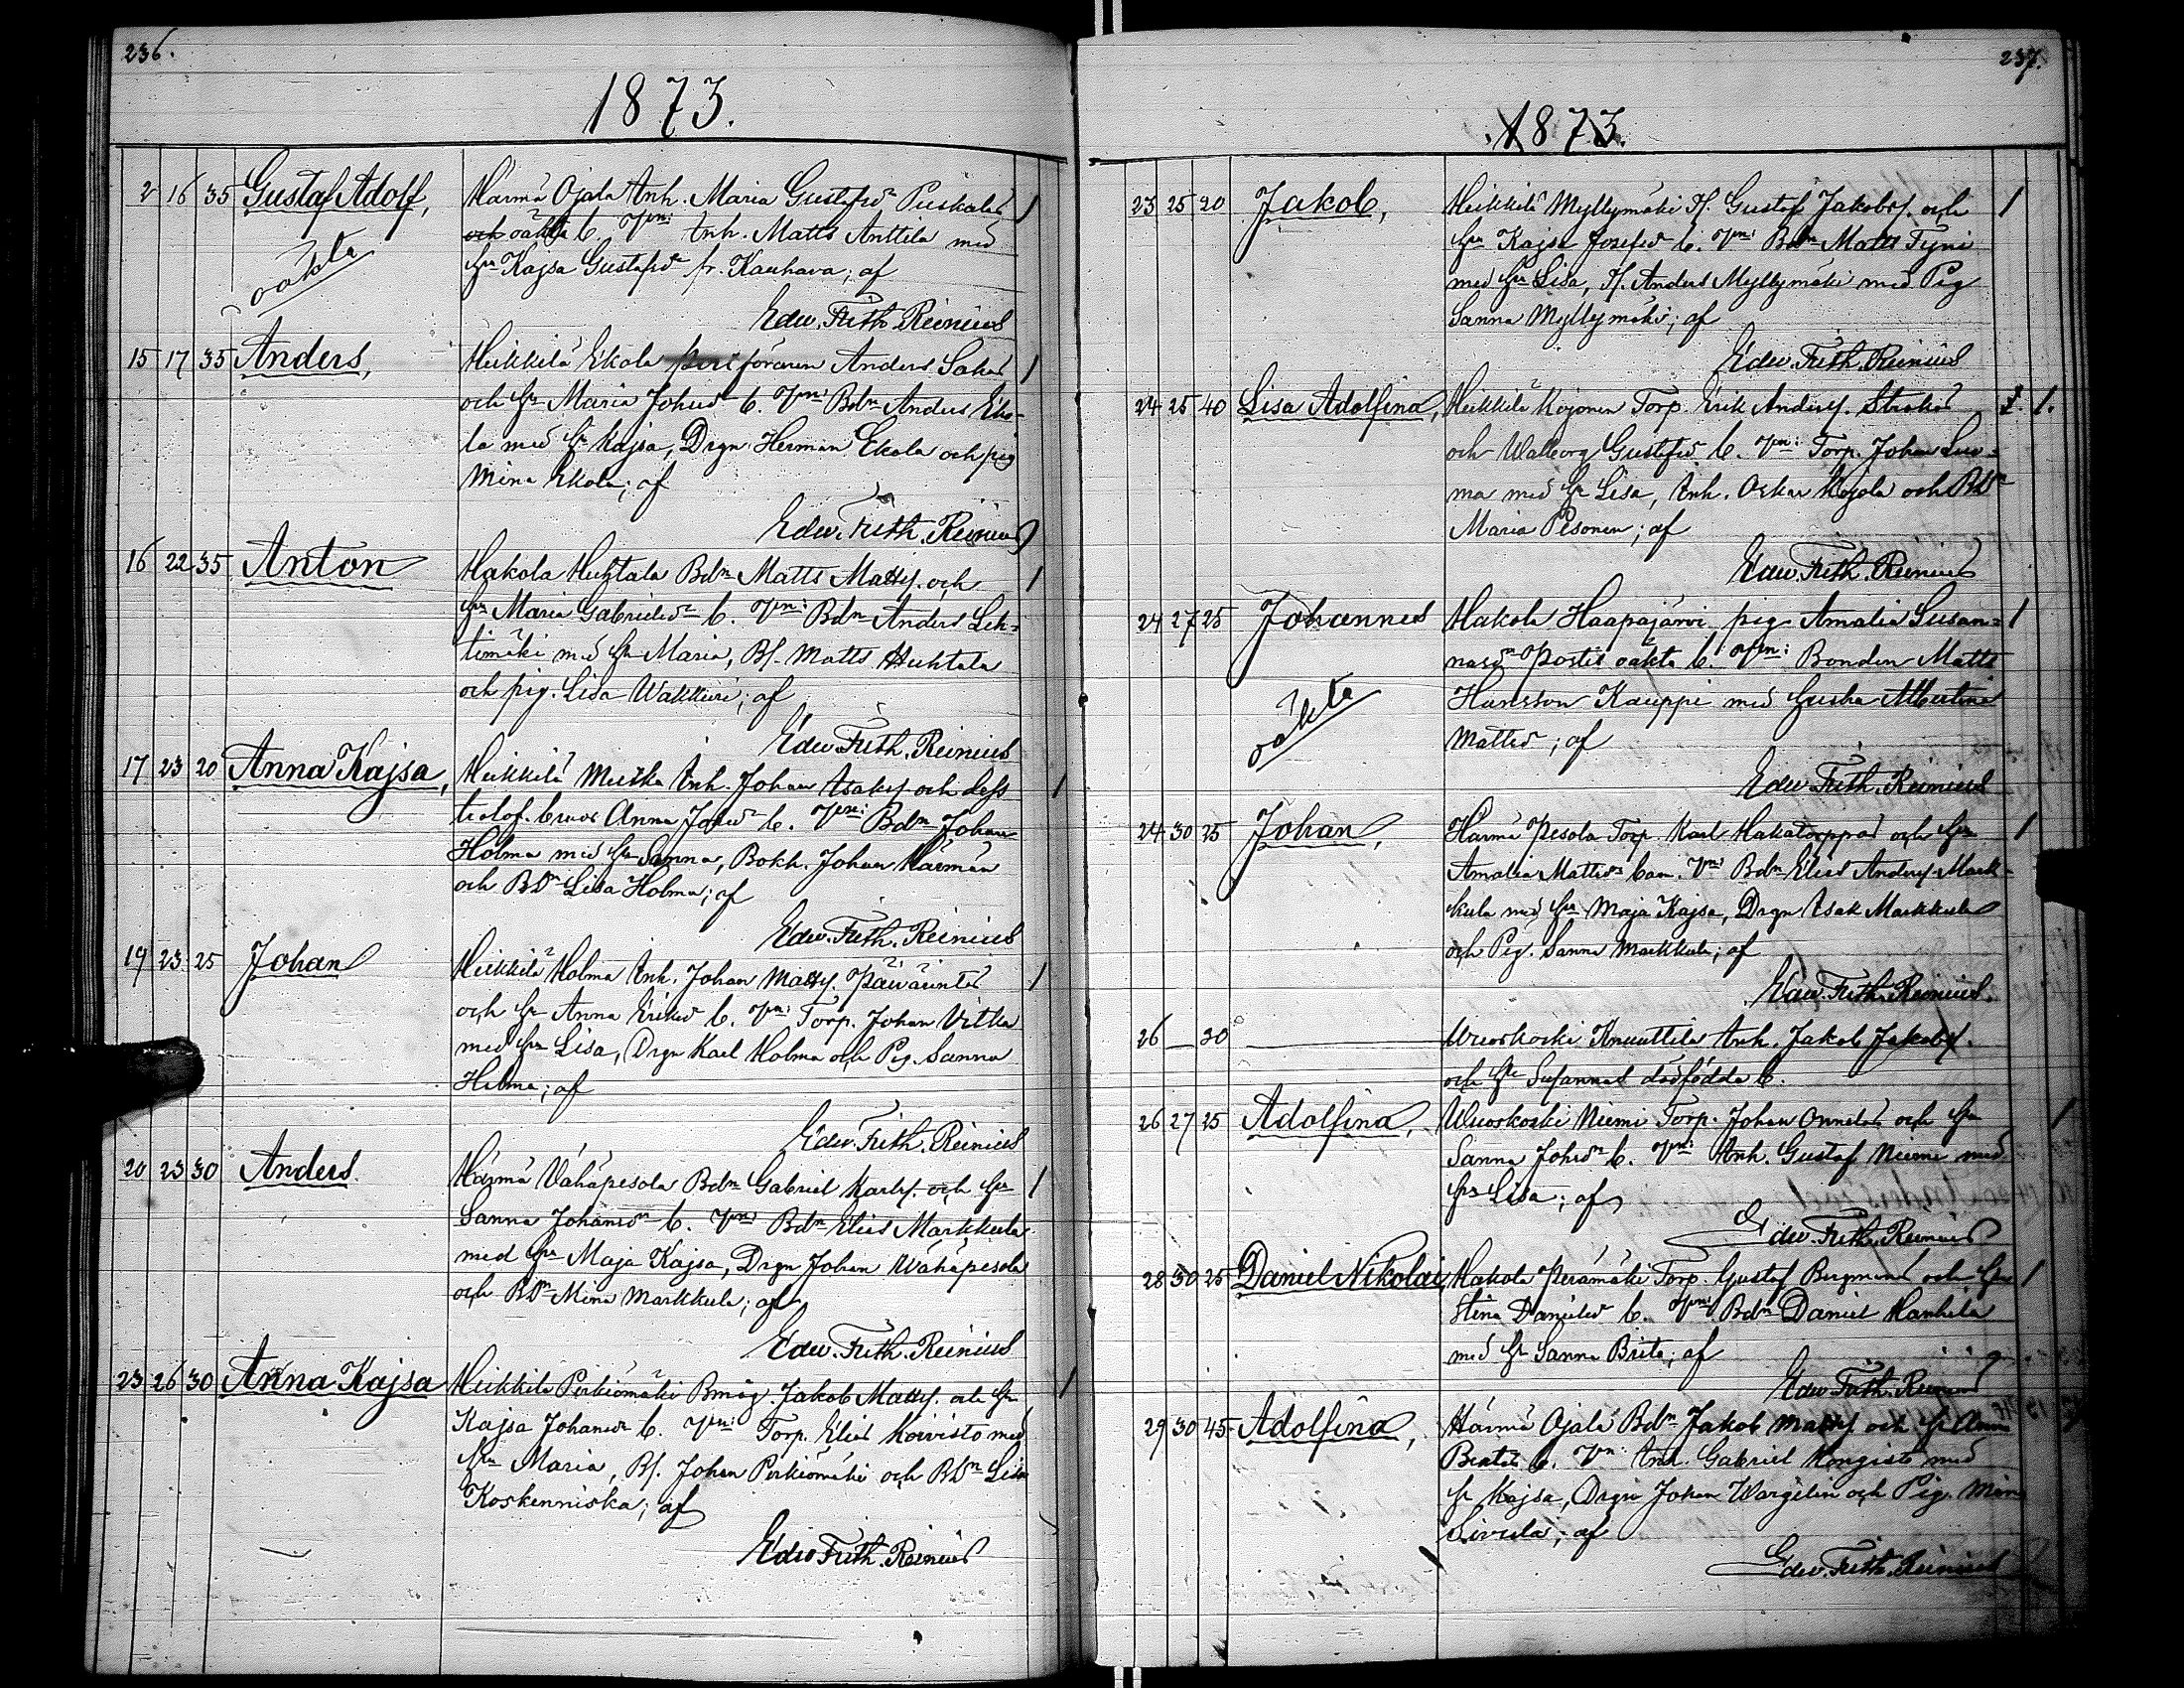 236.
1873.
2 16 35 Gustaf Adolf, Härmä Ojala Inh. Maria Gustafsdr Puskalas 1
oäkta
och oäkta b. Vn: Inh. Matts Anttila med
hu Kajsa Gustafsdr fr. Kauhava; af
Edw. Frith. Reinius
15 17 35 Anders, Heikkilä Ekola föraren Anders Sakas 1
och hu Maria Johsdr b. Vn: Bdn Anders Eko-
la med hu Kajsa, Drgn Herman Ekola och pig
Mina Ekola; af
Edw. Frith. Reinius
16 22 35 Anton Hakola Huhtala Bdn Matts Mattss. och 1
hu Maria Gabrielsdr b. Vn: Bdn Anders Leh-
timäki med hu Maria, Bs. Matts Huhtala
och pig. Lisa Wakkuri; af
Edw. Frith. Reinius
17 23 20 Anna Kajsa, Heikkilä Muska Inh. Johan Isakss och dess 1
trolof. Anna b. Vn: Bdn Johan
Holma med hu Sanna, Bokh. Johan Härmän
och BDr Lisa Holma; af
Edw. Frith. Reinius
19 23 25 Johan Heikkilä Holma Inh. Johan Mattss. Päiväintes 1
och hu Anna Eriksd b. Vn: Torp. Johan Vitka
med hu Lisa, Drgn Karl Holma och Pig. Sanna
Holma; af
Edw. Frith. Reinius
20 23 30 Anders. Härmä Vähäpesola Bdn Gabriel Karlss. och hu 1
Sanna Johansdr b. Vn: Bdn Elias Markkula
med hu Maja Kajsa, Drgn Johan Wähäpesola
och BDr Mina Markkula; af
Edw. Frith. Reinius
23 26 30 Anna Kajsa Heikkilä Perkiömäki Bmåg. Jakob Mattss. och hu 1
Kajsa Johansdr b. Vn: Torp. Elias Koivisto med
hu Maria, Bs. Johan Perkiömäki och BDr Lisa
Koskenniska; af
Edw Frith. Reinius
237.
1873.
23 25 20 Jakob, Heikkilä Myllymäki Is. Gustaf Jakobss. och 1
hu Kajsa Josefsd b. Vn: Bdn Matts Tyni
med hu Lisa, Is. Anders Myllymäki med Pig
Sanna Myllymäki; af
Edw. Frith. Reinius
24 25 40 Lisa Adolfina, Heikkilä Kojonen Torp. Erik Anderss. 1. 1.
och Walborg Gustafsd b. Vn: Torp. Johan Luo-
ma med hu Lisa, Inh. Oskar Kojola och BDr
Maria Pesonen; af
Edw. Frith. Reinius
24 27 25 Johannes Hakola Haapajärvi pig Amalia Susan- 1
oäkta
nasdr Postis oäkta b. Vn: Bonden Matts
Hansson Kauppi med hustru Albertina
Mattsd; af
Edw. Frith. Reinius
24 30 25 Johan, Härmä Pesola Torp. Karl Hakatorppas och hu 1
Amalia Mattsdr barn. Vn: Bdn Elias Anderss. Mark-
kula med hu Maja Kajsa, Drgn Isak Markkula
och Pig. Sanna Markkula; af
Edw. Frith. Reinius.
26 — 20 Wuoskoski Knuuttila Inh. Jakob Jakobss.
och hu Susannas dödfödda b.
26 27 25 Adolfina, Wuoskoski Niemi Torp. Johan Onnelas och hu 1
Sanna Johsdr b. Vn: Inh. Gustaf Niemi med
hu Lisa; af
Edw. Frith. Reinius
28 30 25 Daniel Nikolai, Hakola Perämäki Torp. Gustaf Bergmans och hu 1
Stina Danielsd b. Vn: Bdn Daniel Hanhila
med hu Sanna Brita; af
Edw. Frith. Reinius
29 30 45 Adolfina, Härmä Ojala Bdn Jakob Mattss och hu Anna
Beatas b. Vn: Inh. Gabriel Kongisto med
hu Kajsa, Drgn Johan Wargelin och Pig. Mina
af
Edw. Frith. Reinius